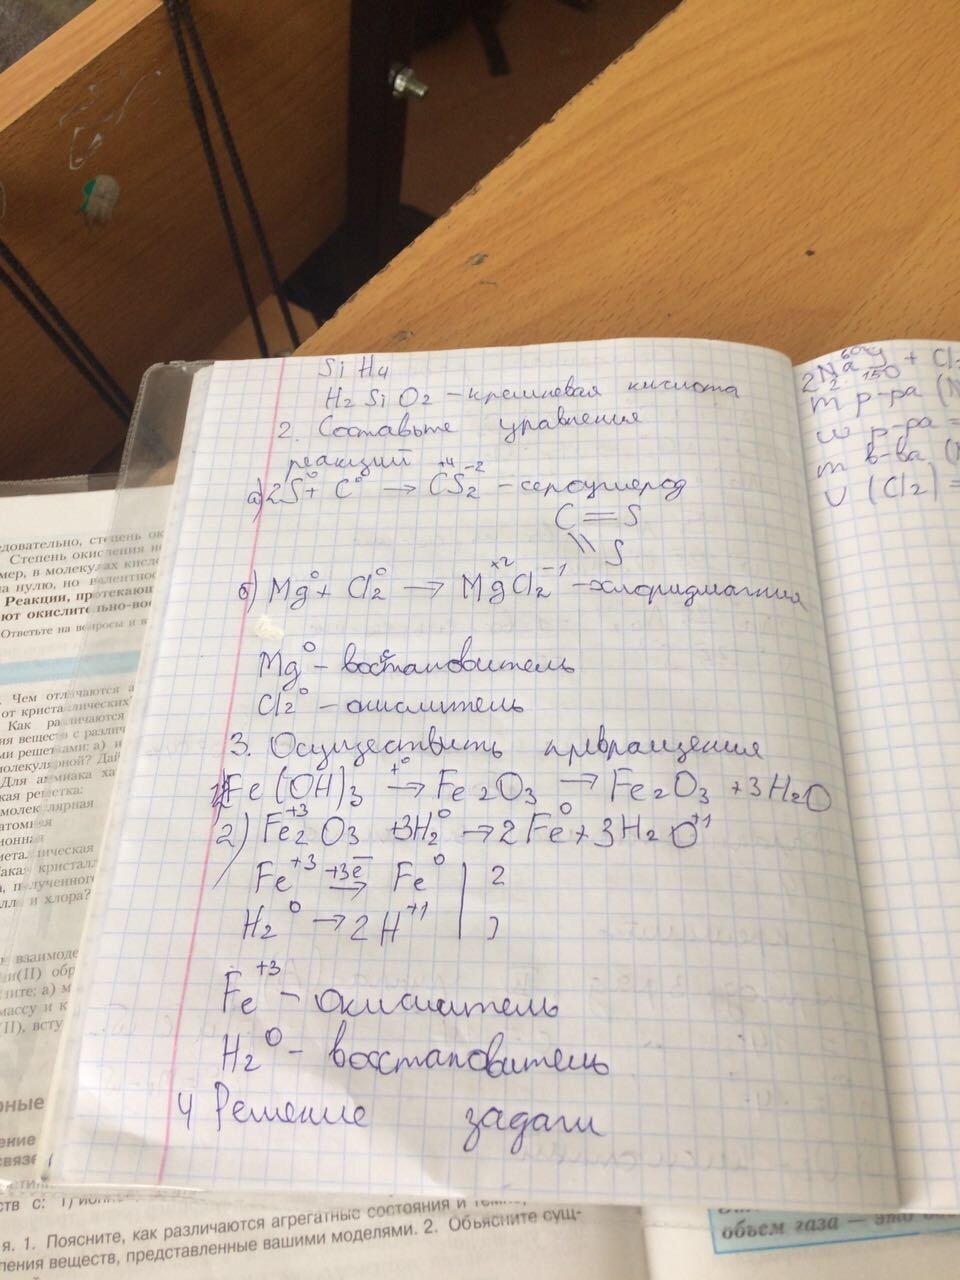 SiH4
H2SiO2 - кремневая кислота
2. Составьте уравнения
реакций
а) 2S⁰ + C⁰ → C⁺⁴S2⁻² - сероуглерод
C = S
\\ S
б) Mg⁰ + Cl2⁰ → Mg⁺²Cl2⁻¹ - хлоридмагния
Mg⁰ - восстановитель
Cl2⁰ - окислитель
3. Осуществить превращения
1) Fe(OH)3 →(t⁰) Fe2O3 → Fe2O3 + 3H2O
2) Fe2⁺³O3 + 3H2⁰ → 2Fe⁰ + 3H2O⁺¹
Fe⁺³ →(+3e̅) Fe⁰ | 2
H2⁰ → 2H⁺¹ |
Fe⁺³ - окислитель
H2⁰ - восстановитель
4 Решение задачи
2Na + Cl
m р-ра (
w р-ра =
m в-ва (
V (Cl2) =
едовательно, степень ок
Степень окисления н
мер, в молекулах кисл
на нулю, но валентнос
Реакции, протекающ
ют окислительно-вос
Ответьте на вопросы и в
Чем отличаются а
от кристаллических?
Как различаются
ия веществ с различ
ми решетками: а) и
молекулярной? Дай
Для аммиака ха
кая решетка:
молекулярная
атомная
ионная
металлическая
Какая кристалл
а, полученного
лл и хлора?
взаимоде
и(II) обр
ите: а) м
массу и к
(II), вступ
рные
ение
связе
ств с: 1) ион
я. 1. Поясните, как различаются агрегатные состояния и
ления веществ, представленные вашими моделями. 2. Объясните сущ-
объем газа — это